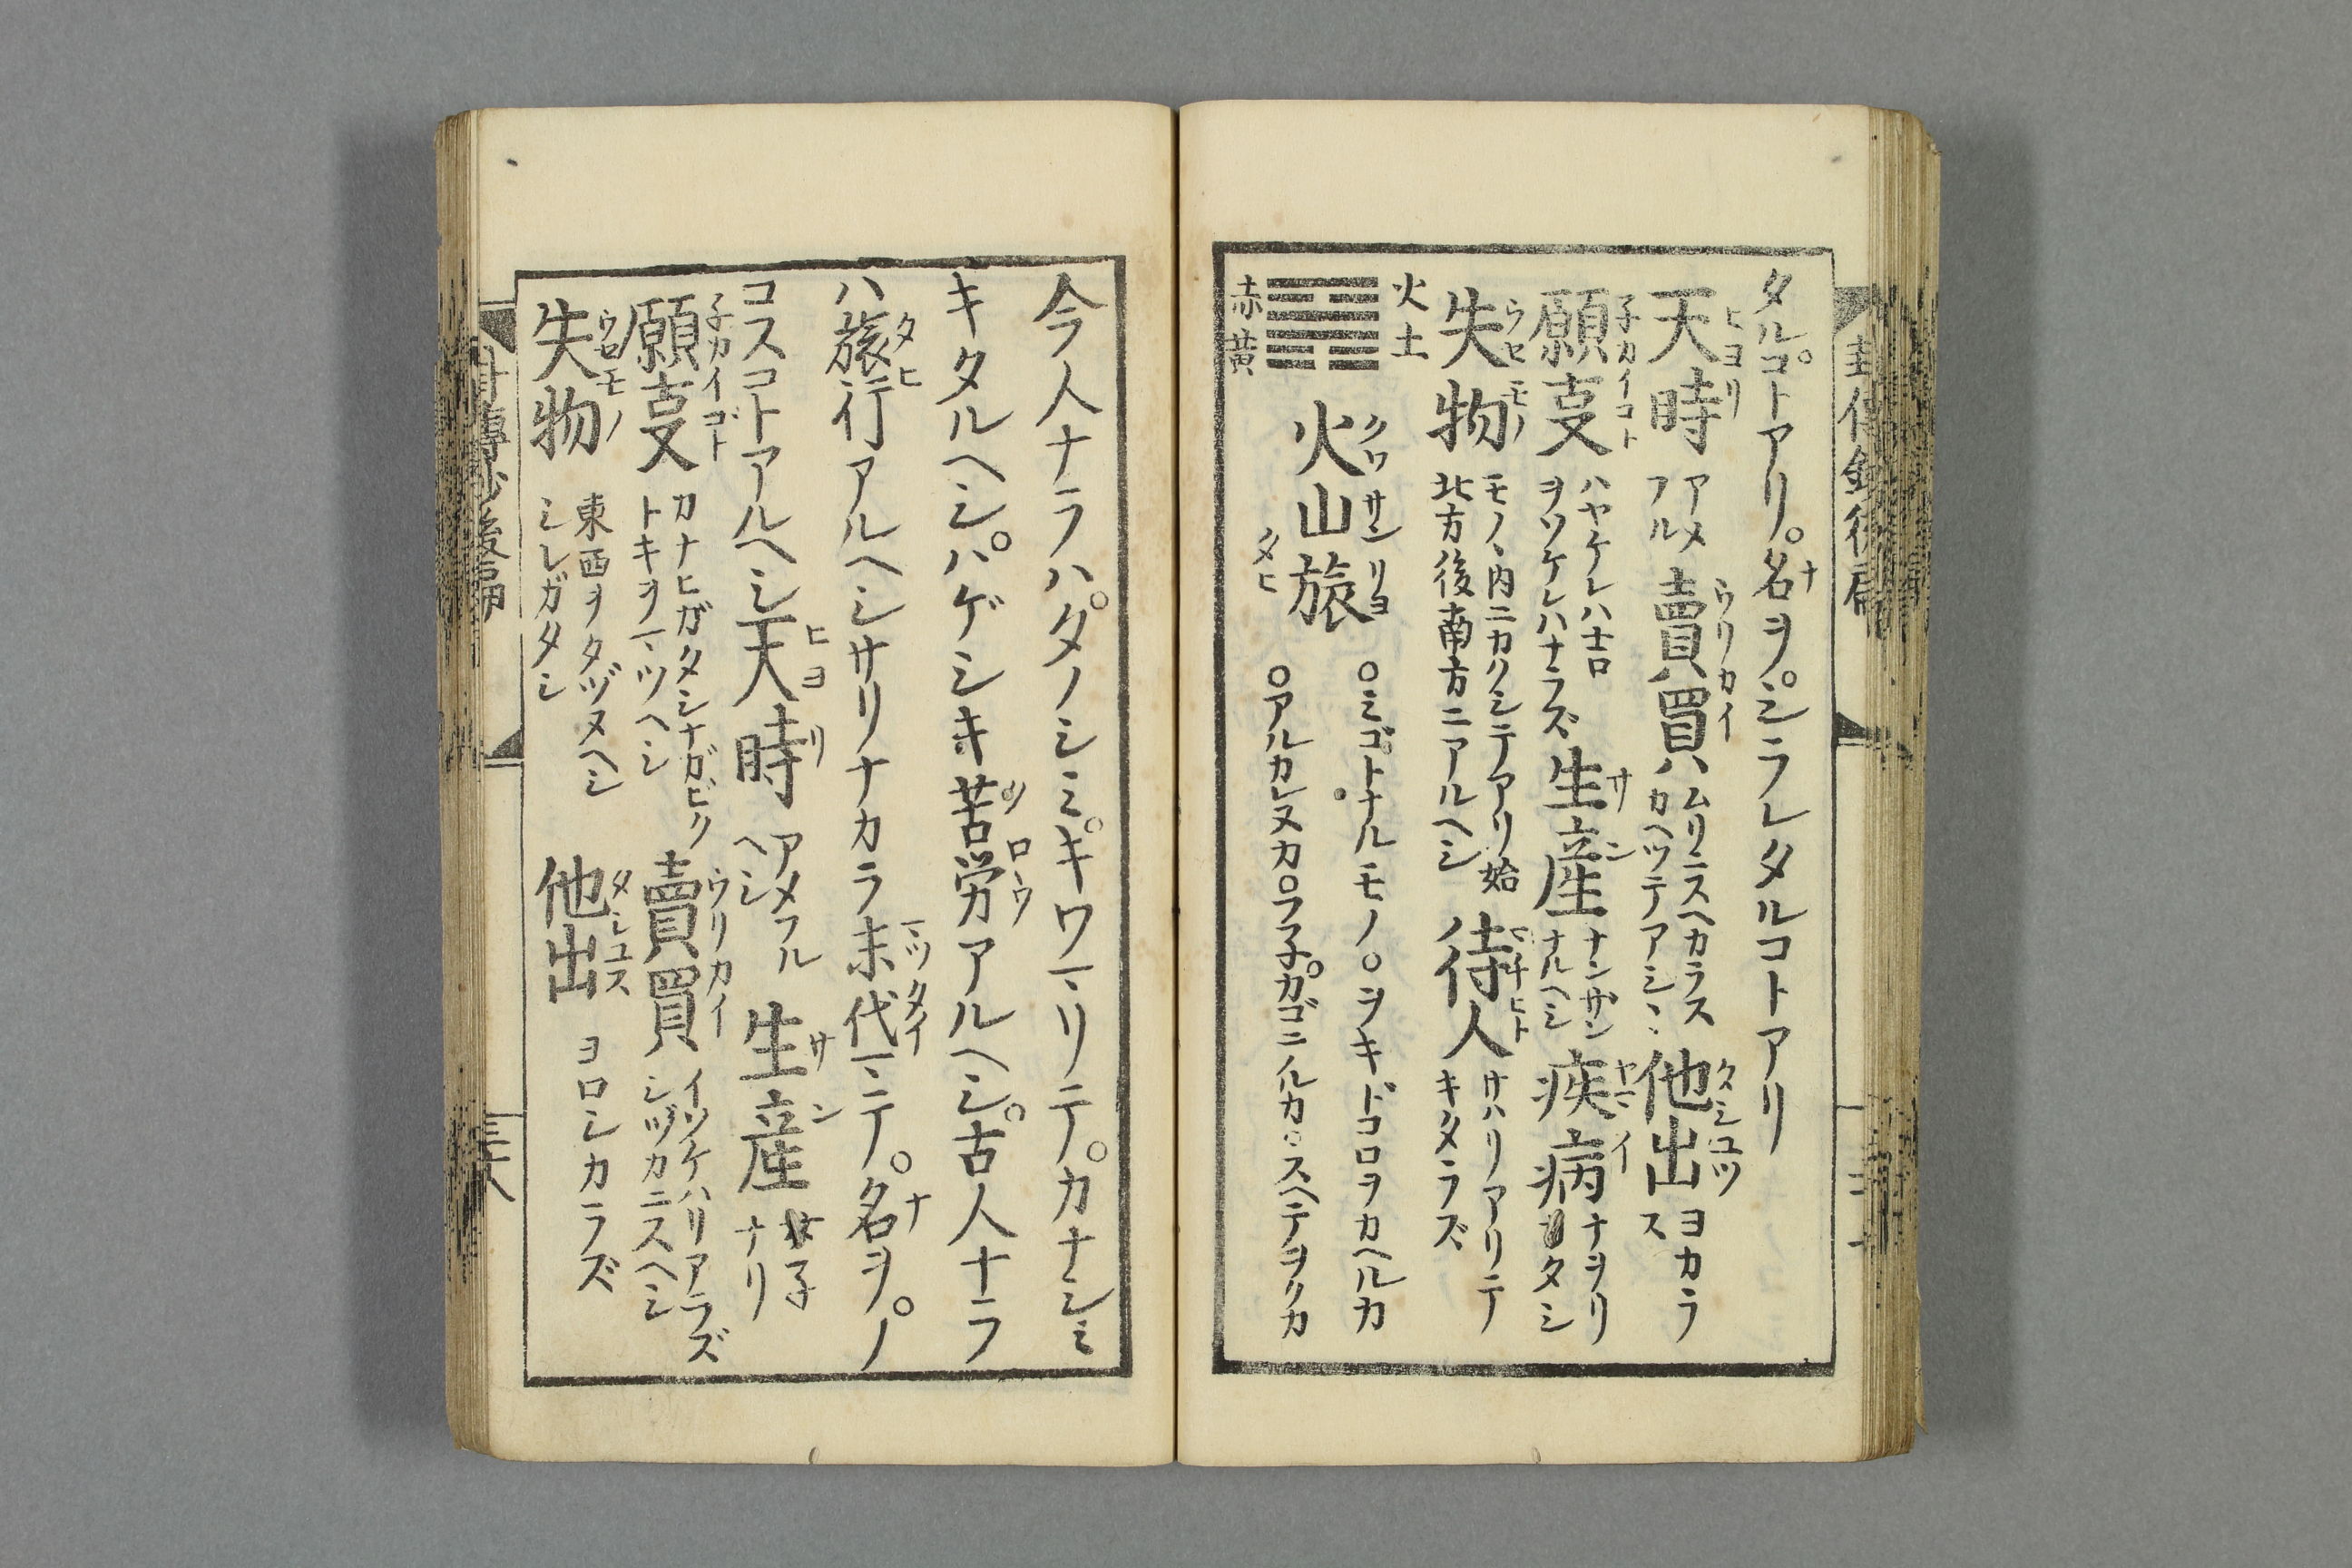 タルコトアリ。名ヲ。シラレタルコトアリ
天時 アメフル 賣買ハ ムリニスヘカラス カヘツテアシヽ 他出 ヨカラス
願叓 ハヤケレハ吉 ヲソケレハナラズ 生産 ナンザンナルヘシ 疾病 ナヲリガタシ
失物 モノヽ内ニカクシテアリ始 北方後南方ニアルヘシ 待人 サハリアリテ キタラズ
火土
赤黄
火山旅
クワサンリヨ
タヒ
○ミゴトナルモノ○ヲキドコロヲカヘルカ
○アルカレヌカ○フ子。カゴニノルカ○スヘテヲクカ
今人ナラハ。タノシミ。キワマリテ。カナシミ
キタルヘシ。ハゲシキ苦労アルヘシ。古人ナラ
ハ旅行アルヘシサリナカラ末代マテ。名ヲ。ノ
コスコトアルヘシ天時 アメフルヘシ 生産 女子ナリ
願叓 カナヒガタシナガビク トキヲマツヘシ 賣買 イツケハリアラズ シヅカニスヘシ
失物 東西ヲタヅヌヘシ シレガタシ 他出 ヨロシカラズ
三十八